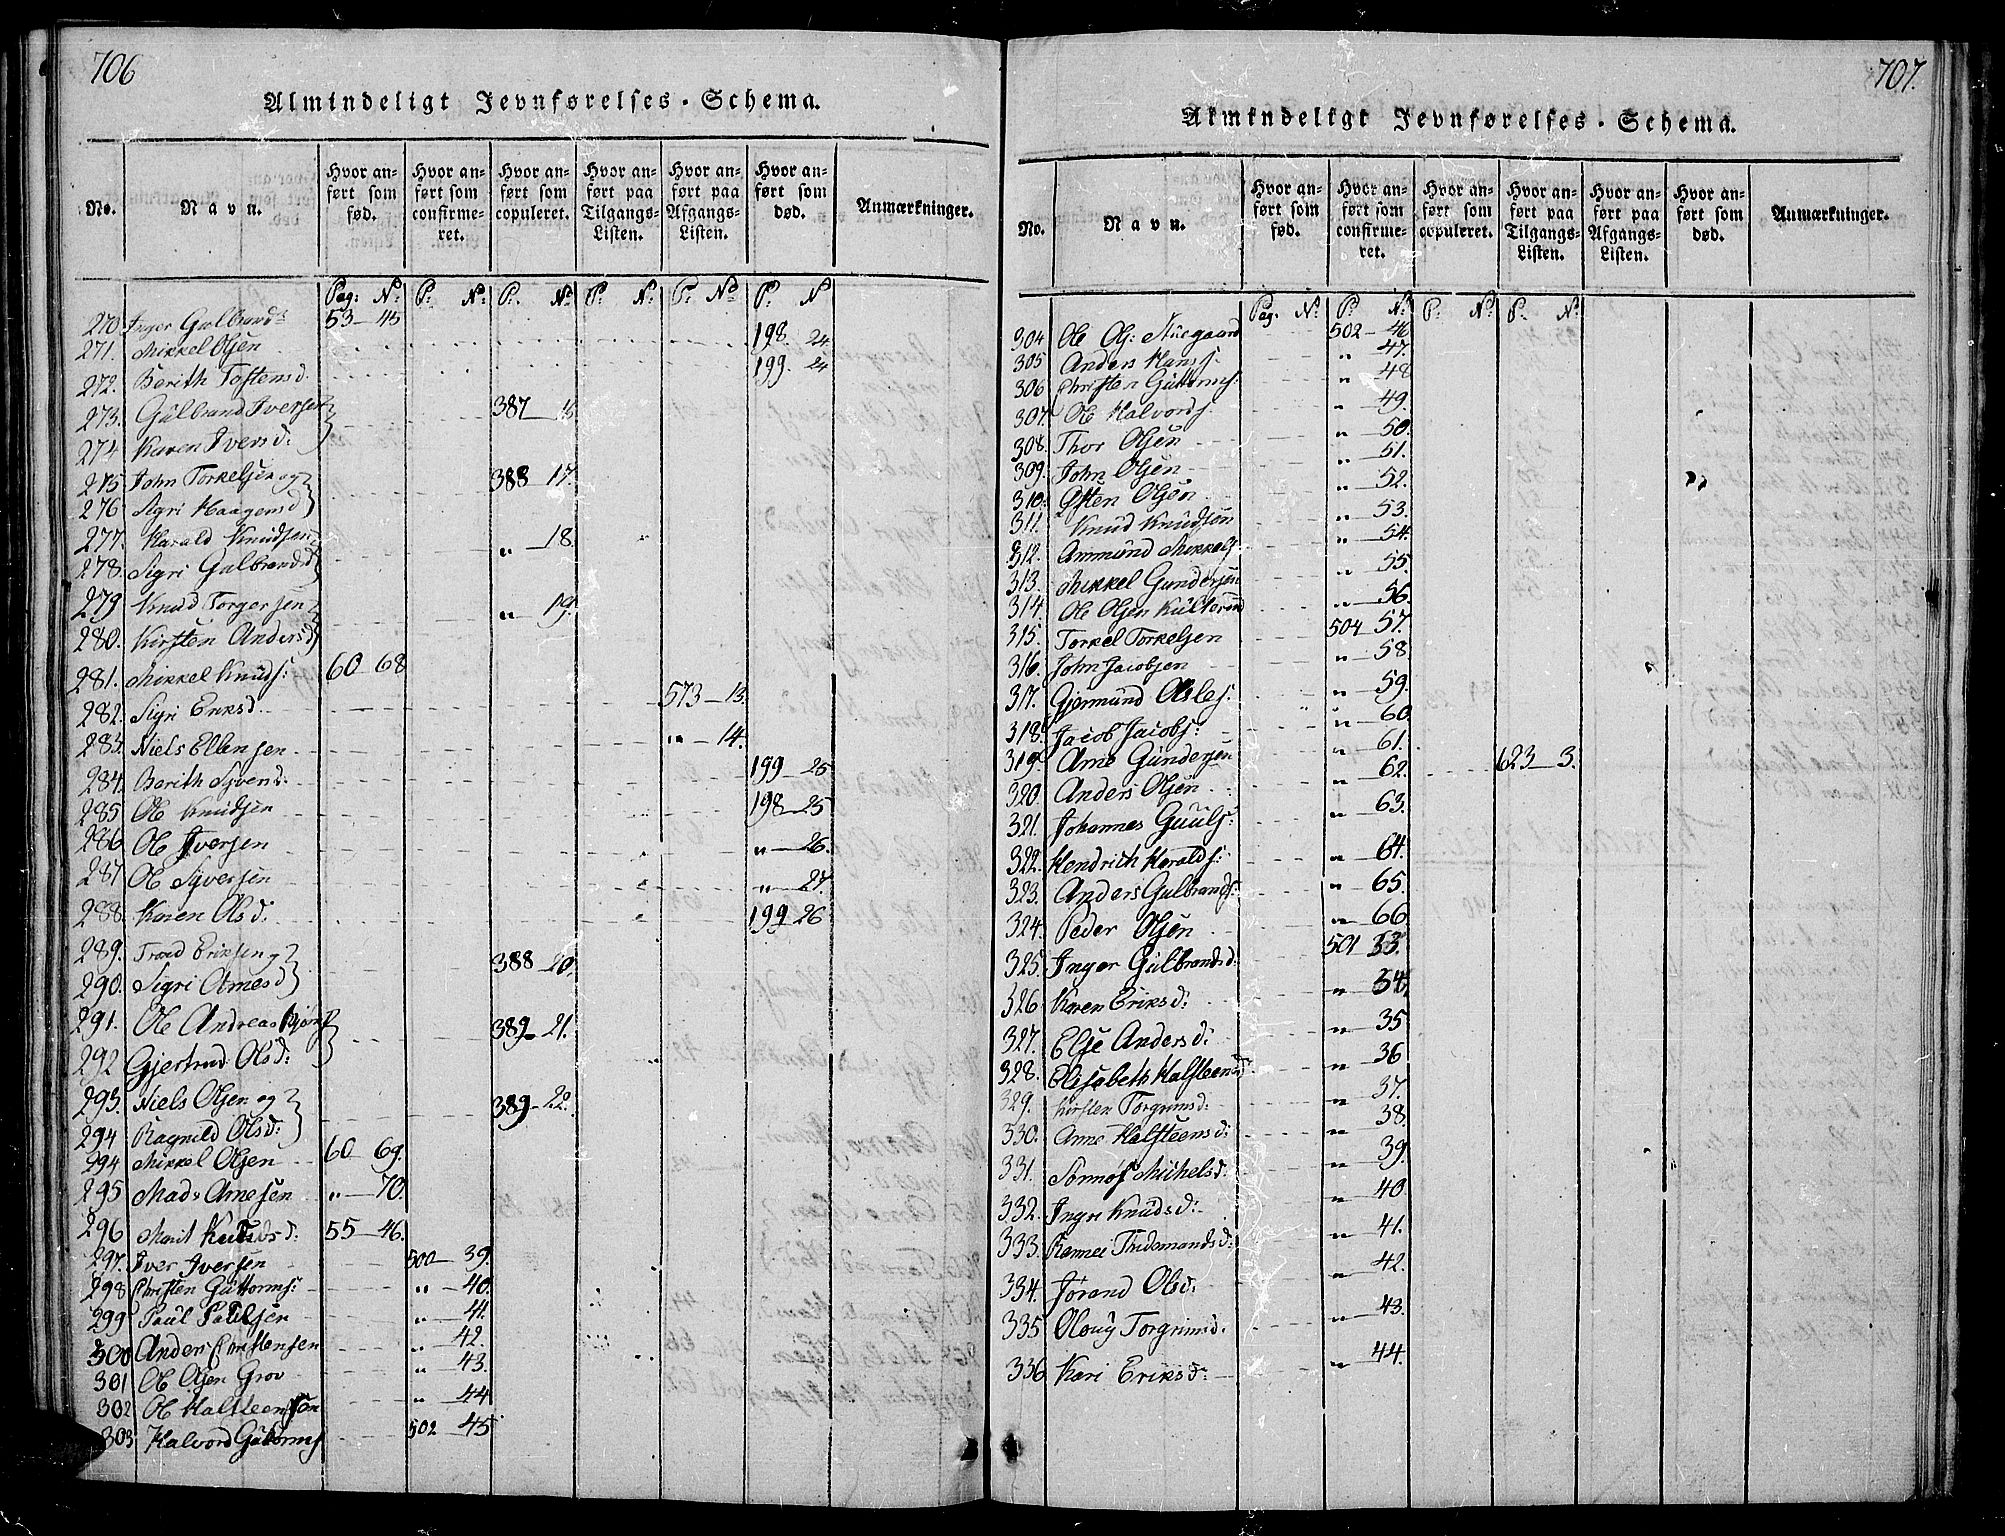 706
Almindeligt Jevnførelses-Schema.
No. Navn. Hvor anført som fød. Hvor anført som confirmeret. Hvor anført som copuleret. Hvor anført paa Tilgangs-Listen. Hvor anført paa Afgangs-Listen. Hvor anført som død. Anmærkninger.
Pag: No: P: No: P: No: P: No: P: No: P. N
270 Inger Gulbrandsd 53 - 45
271. Mikkel Olsen 198. 24
272. Berith Tostensd. 199. 24
273. Gulbrand Iversen 387 - 16
274 Karen Iversd:
275 John Torkelsen og 388 - 17.
276 Sigri Haagensd
277. Harald Knudsen " - 18.
278. Sigri Gulbrandsd
279 Knud Torgersen " - 19.
280. Kirsten Andersd
281. Mikkel Knuds: 60 - 68
282. Sigri Eriksd. 573 - 13.
283. Niels Ellensen " - 14.
284. Berith Syversd. 199 - 25
285 Ole Knudsen 198 - 25
286 Ole Iversen " - 26.
287 Ole Syversen " - 27
288. Karen Olsd. 199 - 26
289. Trond Eriksen og 388 - 20.
290. Sigri Arnesd
291. Ole Andreas 389 - 21.
292 Gjertrud Olsd:
293. Niels Olsen og 389 - 22.
294 Ragnild Olsd:
294 Mikkel Olsen 60 - 69.
295 Mads Arnesen " - 70.
296 Marit Knudsd: 55 - 46.
297. Iver Iversen 500 - 39.
298 Christen Guttorms: " - 40.
299 Paul Paulsen " - 41.
300 Anders Christensen " - 42.
301 Ole Olsen Grov " - 43.
302 Ole Halsteensøn " - 44
303 Halvord Guttorms 502 - 45
707.
Almindeligt Jevnførelses-Schema.
No. Navn. Hvor anført som fød. Hvor anført som confirmeret. Hvor anført som copuleret. Hvor anført paa Tilgangs-Listen. Hvor anført paa Afgangs-Listen. Hvor anført som død. Anmærkninger.
Pag. No: P: No: P: No: P. No:
304 Ole Ols: Stuegaard 502 - 46
305 Anders Hanss. " - 47.
306 Christen Guttorms: " - 48
307. Ole Halvords. " - 49.
308. Thor Olsen " - 50.
309. John Olsen " - 51.
310. Østen Olsen " - 52.
311. Knud Knudsen " - 53.
312. Ammund Mikkels. " - 54.
313. Mikkel Gundersen " - 55.
314. Ole Olsen " - 56.
315. Torkel Torkelsen 504 - 57.
316. John Jacobsen " - 58.
317. Gjermund Asles: " - 59.
318. Jacob Jacobs: " - 60.
319 Arne Gundersen " - 61. 623 - 3.
320. Anders Olsen " - 62.
321. Johannes Guuls: " - 63.
322. Hendrich Haralds: " - 64.
323. Anders Gulbrands: " - 65.
324. Peder Olsen " - 66
325. Inger Gulbrandsd: 501 - 33.
326 Karen Eriksd: " - 34.
327. Else Andersd: " - 35
328. Elisabeth Halsteensd " - 36
329. Kirsten Torgrimsd: " - 37.
330. Anne Halsteensd: " - 38.
331. Sønnøf Michelsd: " - 39.
332. Ingri Knudsd: " - 40
333. Rannei Thidemandsd: " - 41.
334. Jørand Olsd: " - 42.
335 Oloug Torgrimsd. " - 43.
336 Kari Eriksd: " - 44.